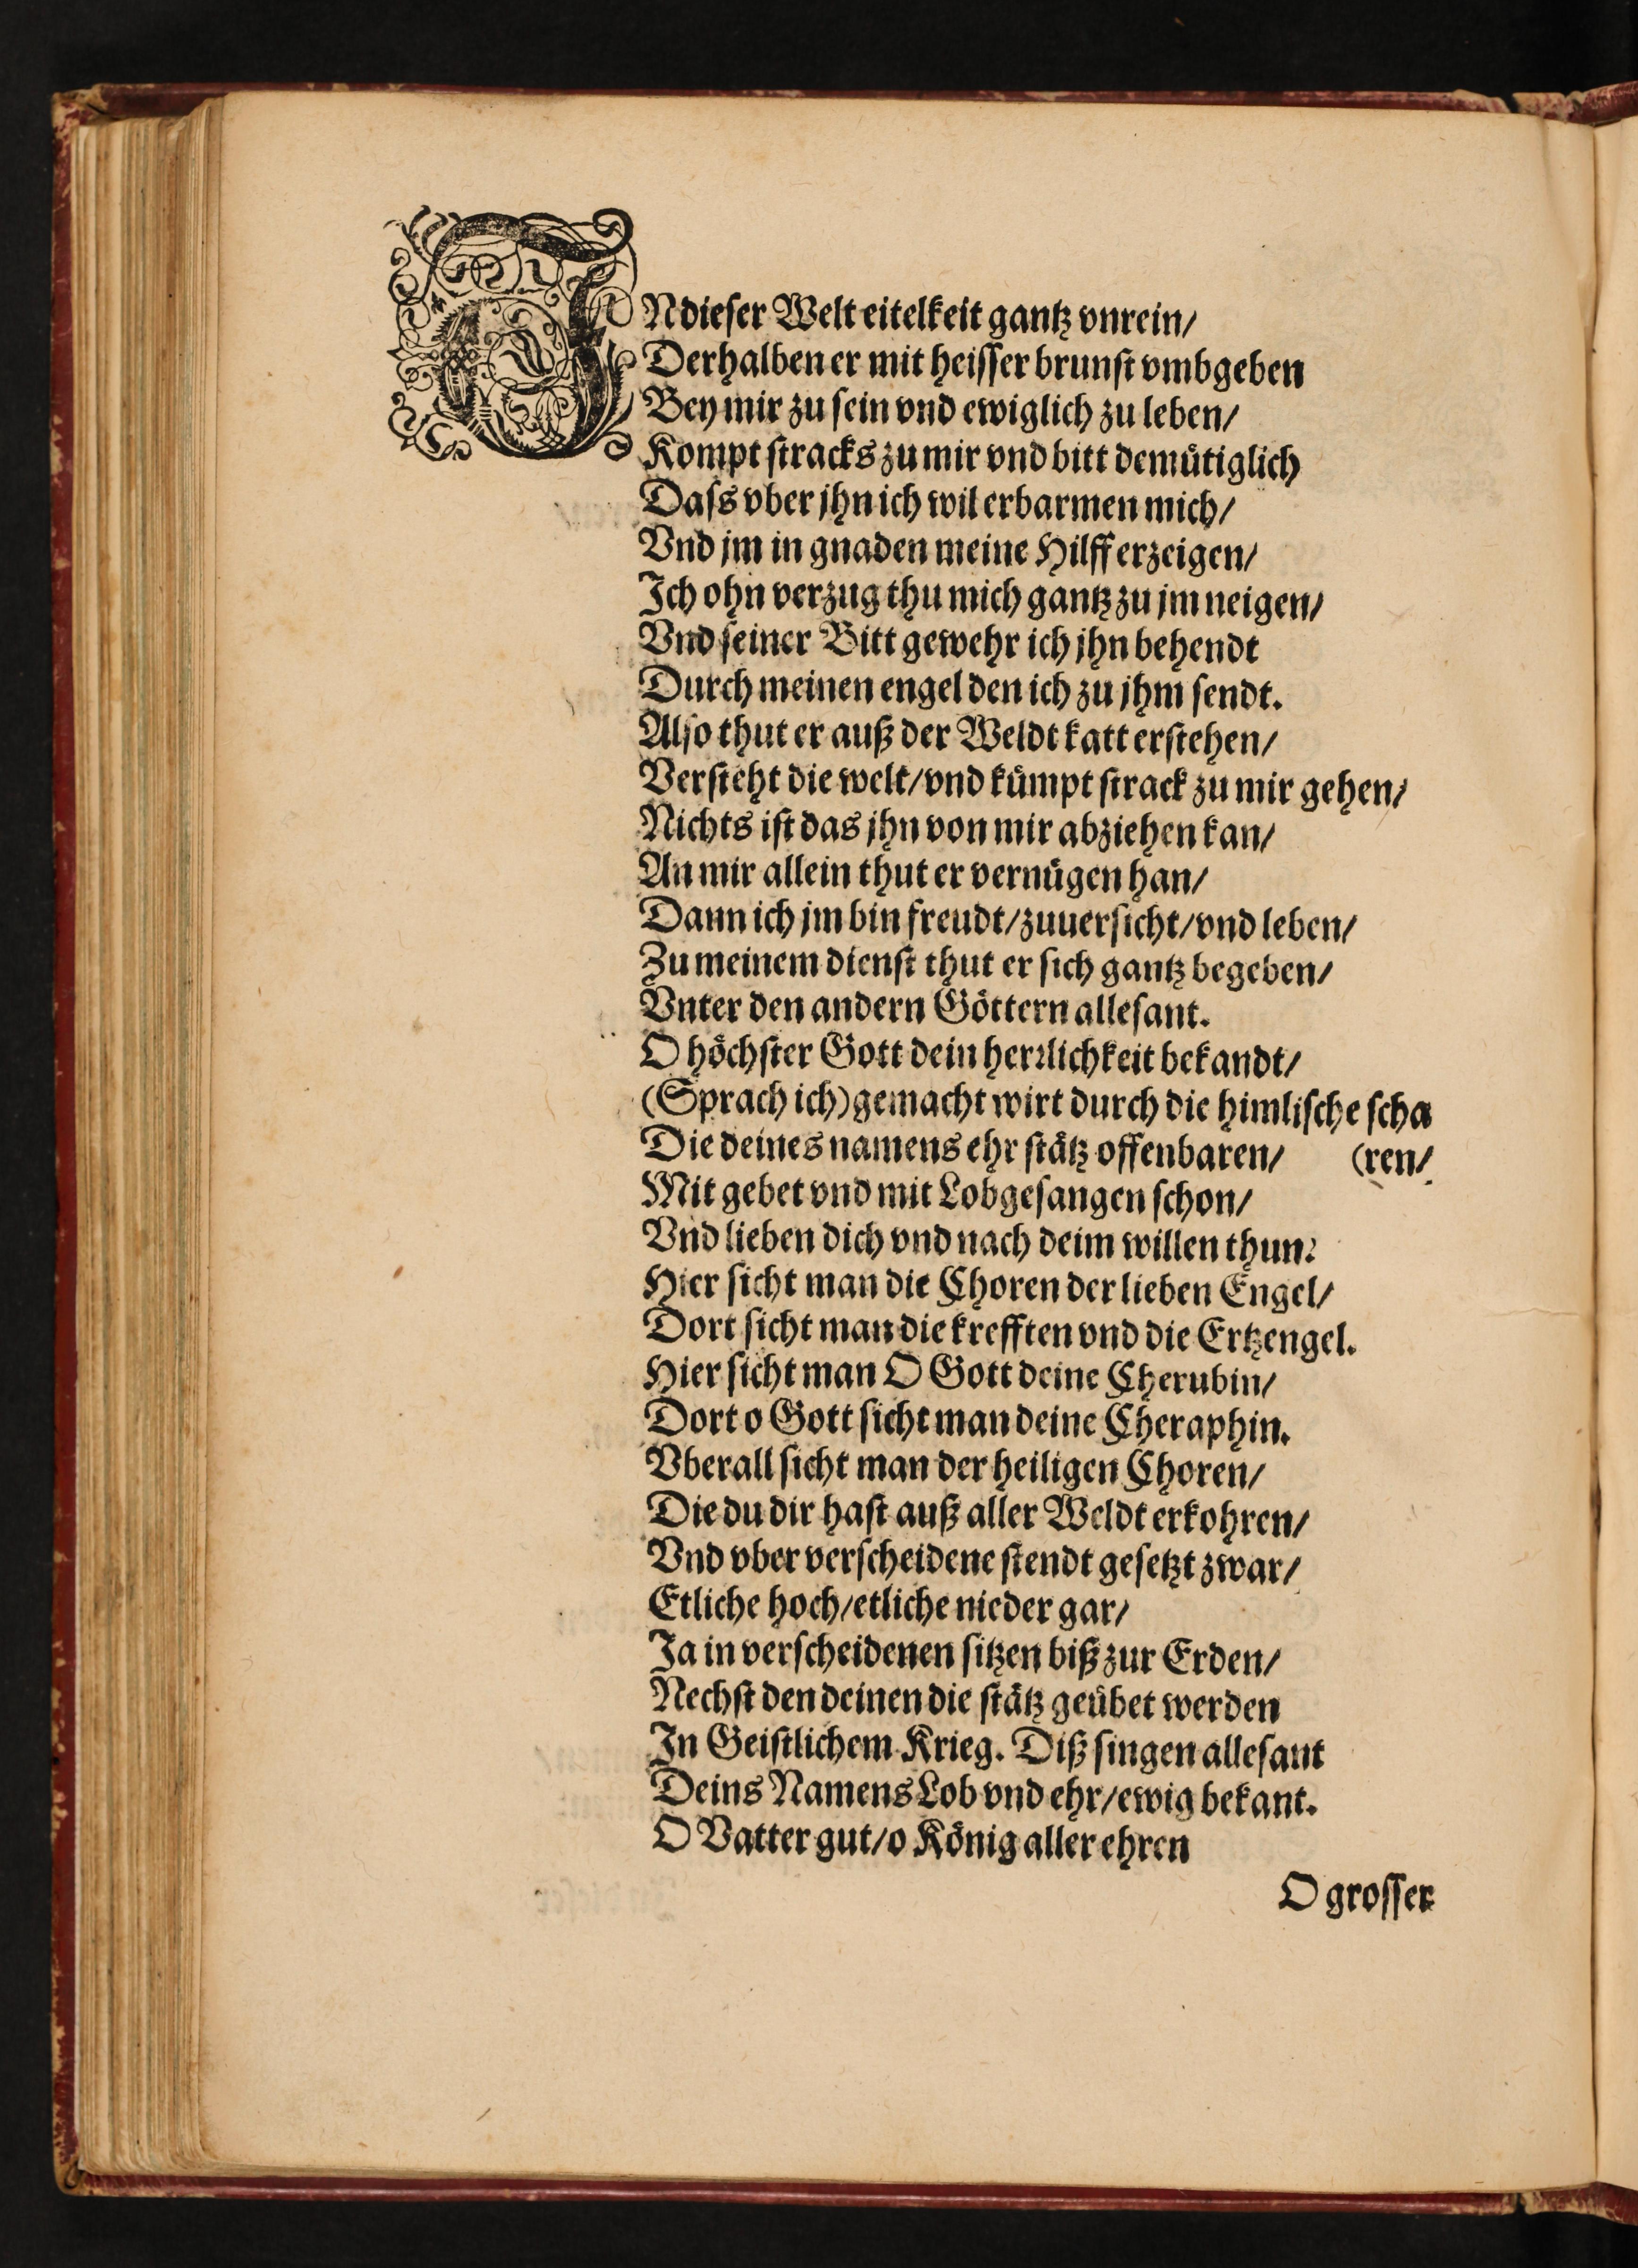 INdieser Welt eitelkeit gantz vnrein/
Derhalben er mit heisser brunst vmbgeben
Bey mir zu sein vnd ewiglich zu leben/
Kompt stracks zu mir vnd bitt demütiglich
Dass vber jhn ich wil erbarmen mich/
Vnd jm in gnaden meine Hilff erzeigen/
Ich ohn verzug thu mich gantz zu jm neigen/
Vnd seiner Bitt gewehr ich jhn behendt
Durch meinen engel den ich zu jhm sendt.
Also thut er auß der Weldt katt erstehen/
Versteht die welt/vnd kümpt strack zu mir gehen/
Nichts ist das jhn von mir abziehen kan/
An mir allein thut er vernügen han/
Dann ich jm bin freudt/zuuersicht/vnd leben/
Zu meinem dienst thut er sich gantz begeben/
Vnter den andern Göttern allesant.
O höchster Gott dein herrlichkeit bekandt/
(Sprach ich) gemacht wirt durch die himlische scha
Die deines namens ehr stätz offenbaren/ (ren/
Mit gebet vnd mit Lobgesangen schon/
Vnd lieben dich vnd nach deim willen thun.
Hier sicht man die Choren der lieben Engel/
Dort sicht man die krefften vnd die Ertzengel.
Hier sicht man O Gott deine Cherubin/
Dort o Gott sicht man deine Cheraphin.
Vberall sicht man der heiligen Choren/
Die du dir hast auß aller Weldt erkohren/
Vnd vber verscheidene stendt gesetzt zwar/
Etliche hoch/etliche nieder gar/
Ja in verscheidenen sitzen biß zur Erden/
Nechst den deinen die stätz geübet werden
In Geistlichem Krieg. Diß singen allesant
Deins Namens Lob vnd ehr/ewig bekant.
O Vatter gut/o König aller ehren
O grosser